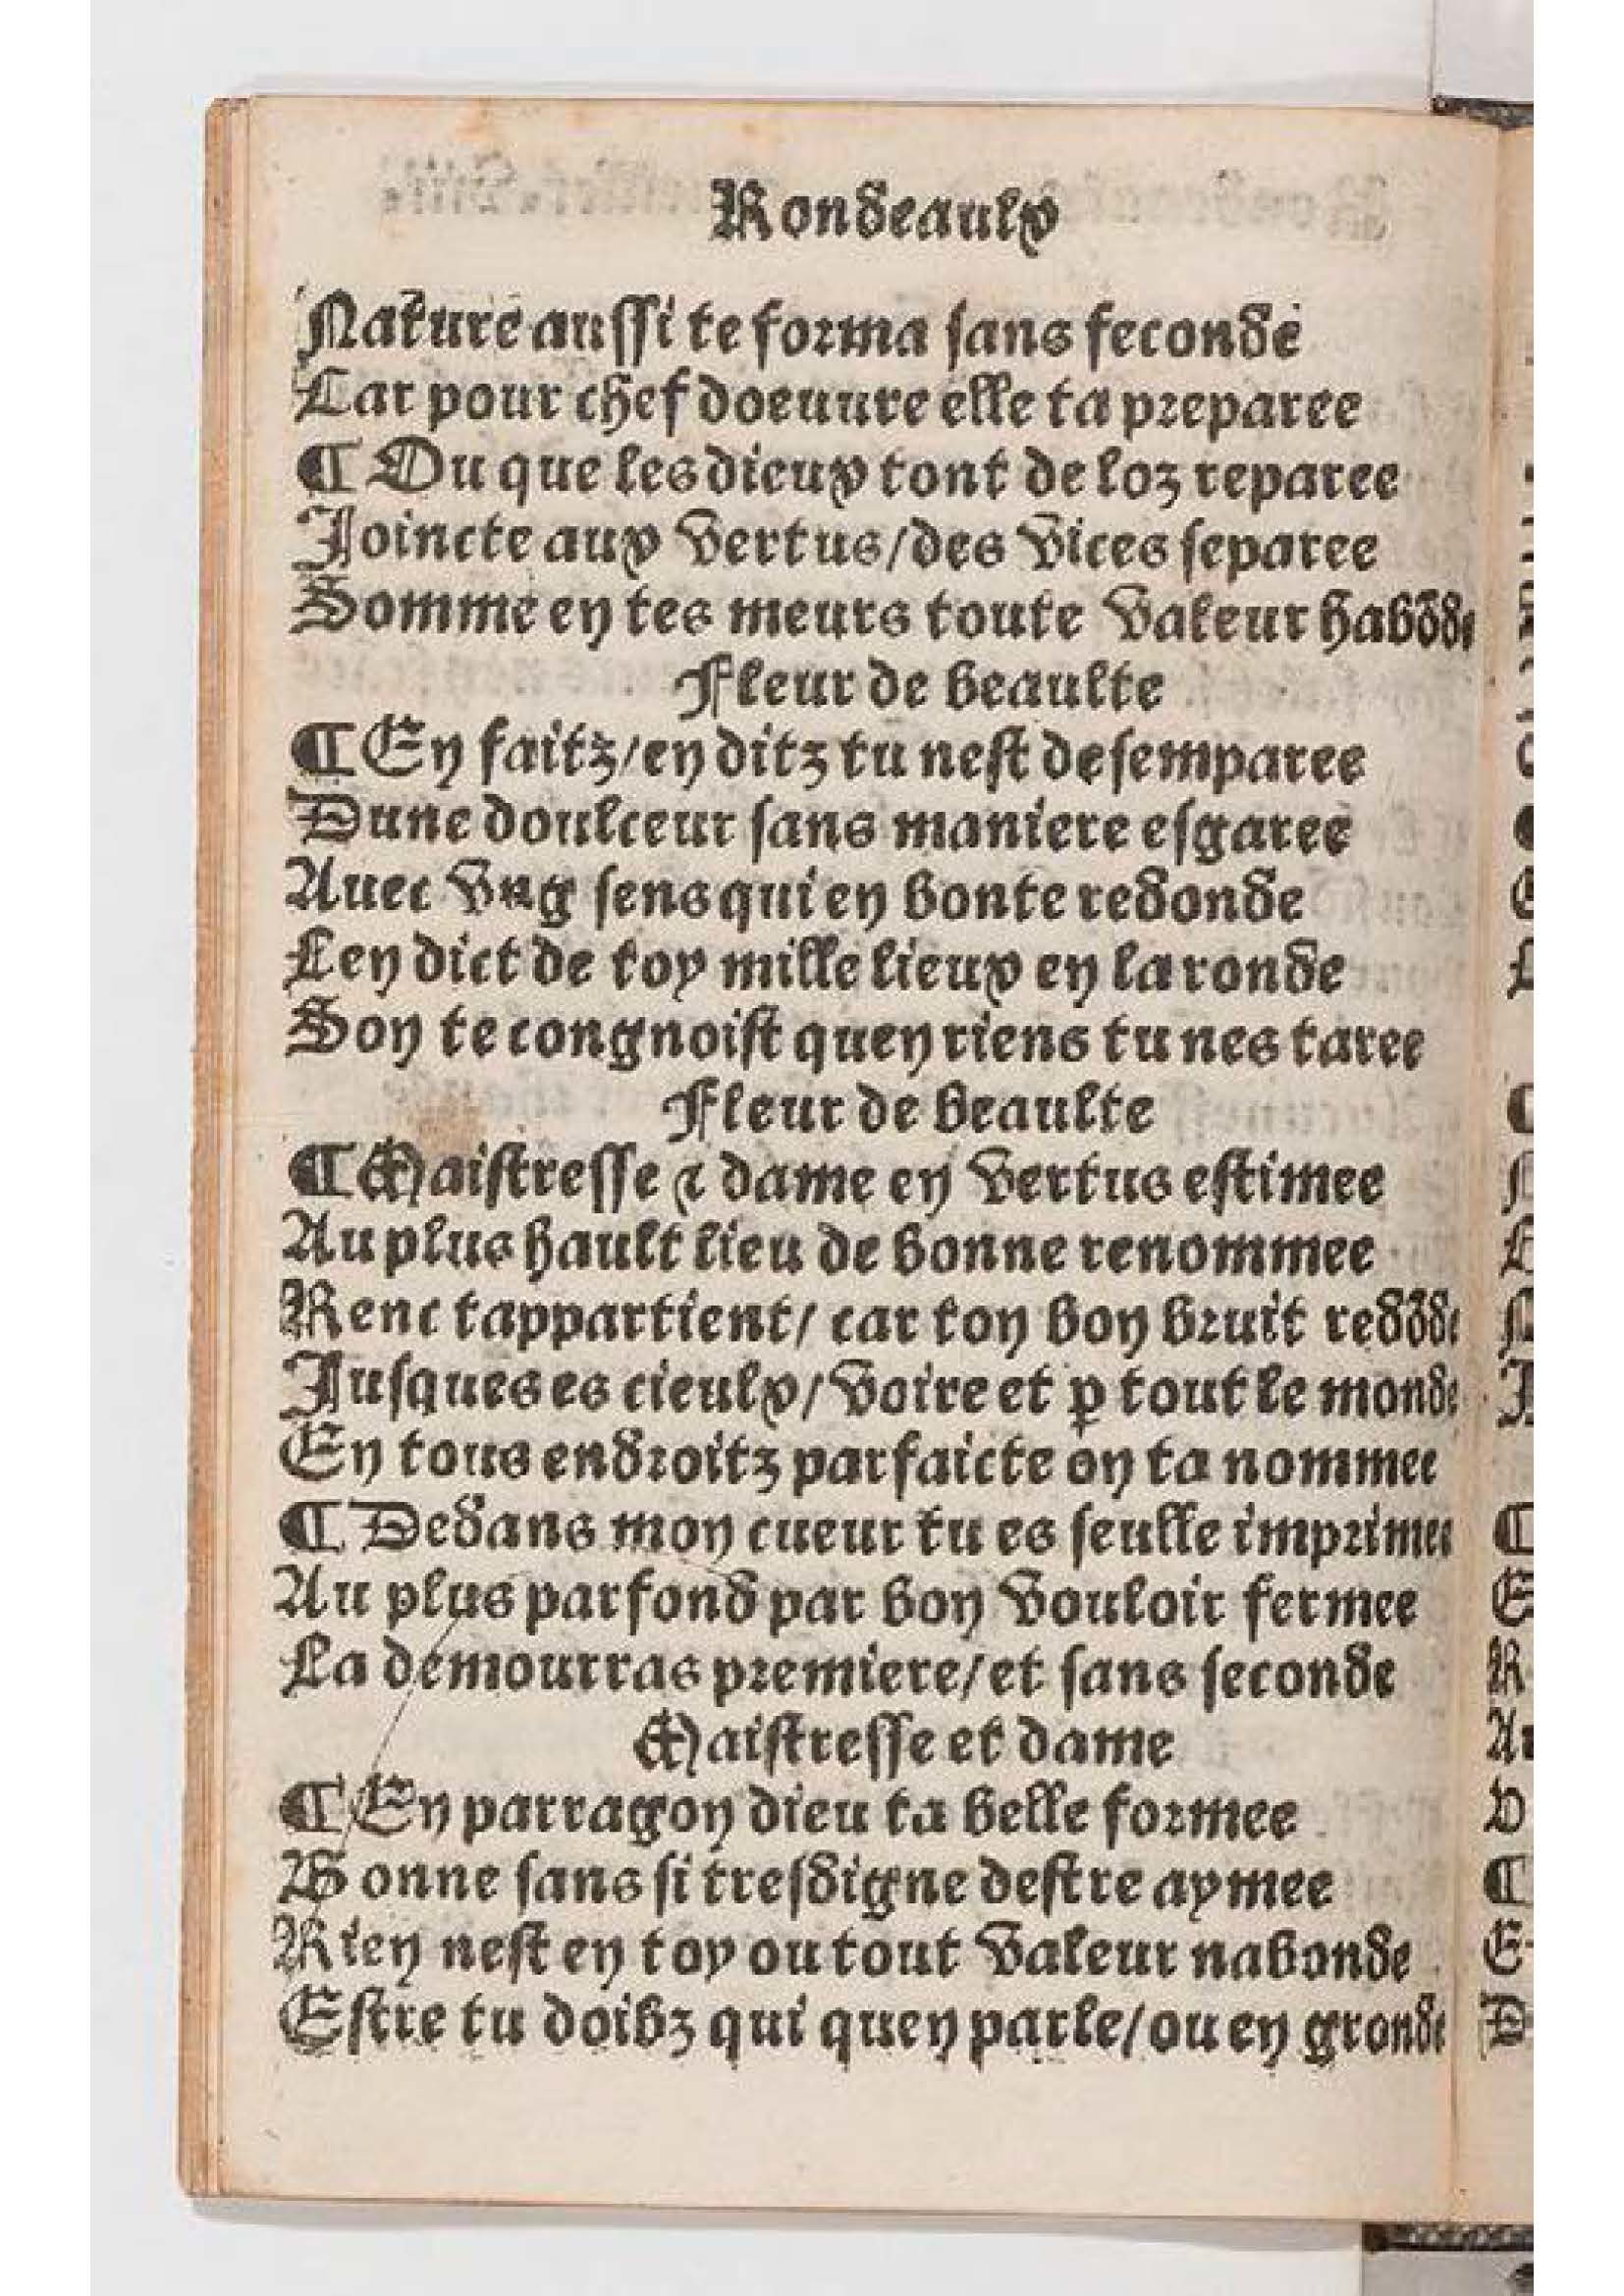 Rondeaulx
Nature aussi te forma sans seconde
Car pour chef doeuure elle ta preparee
¶ Ou que les dieux tont de loz reparee
Joincte aux vertus/des vices separee
Somme en tes meurs toute valeur habõde
Fleur de beaulte
¶ En faitz/en ditz tu nest desemparee
Dune doulceur sans maniere esgaree
Auec vng sens qui en bonte redonde
Len dict de toy mille lieux en la ronde
Son te congnoist quen riens tu nes taree
Fleur de beaulte
¶ Maistresse ⁊ dame en vertus estimee
Au plus hault lieu de bonne renommee
Renc tappartient/ car ton bon bruit redõde
Jusques es cieulx/voire et ꝑ tout le monde
En tous endroitz parfaicte on ta nommee
¶ Dedans mon cueur tu es seulle imprimee
Au plus parfond par bon vouloir fermee
La demourras premiere/et sans seconde
Maistresse et dame
¶ En parragon dieu ta belle formee
Bonne sans si tresdigne destre aymee
Rien nest en toy ou tout valeur nabonde
Estre tu doibz qui quen parle/ou en gronde